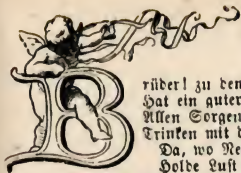 Brüder! zu den
Hat ein guter
Allen Sorgen
Trinken mit
Da, wo
Holde Lust